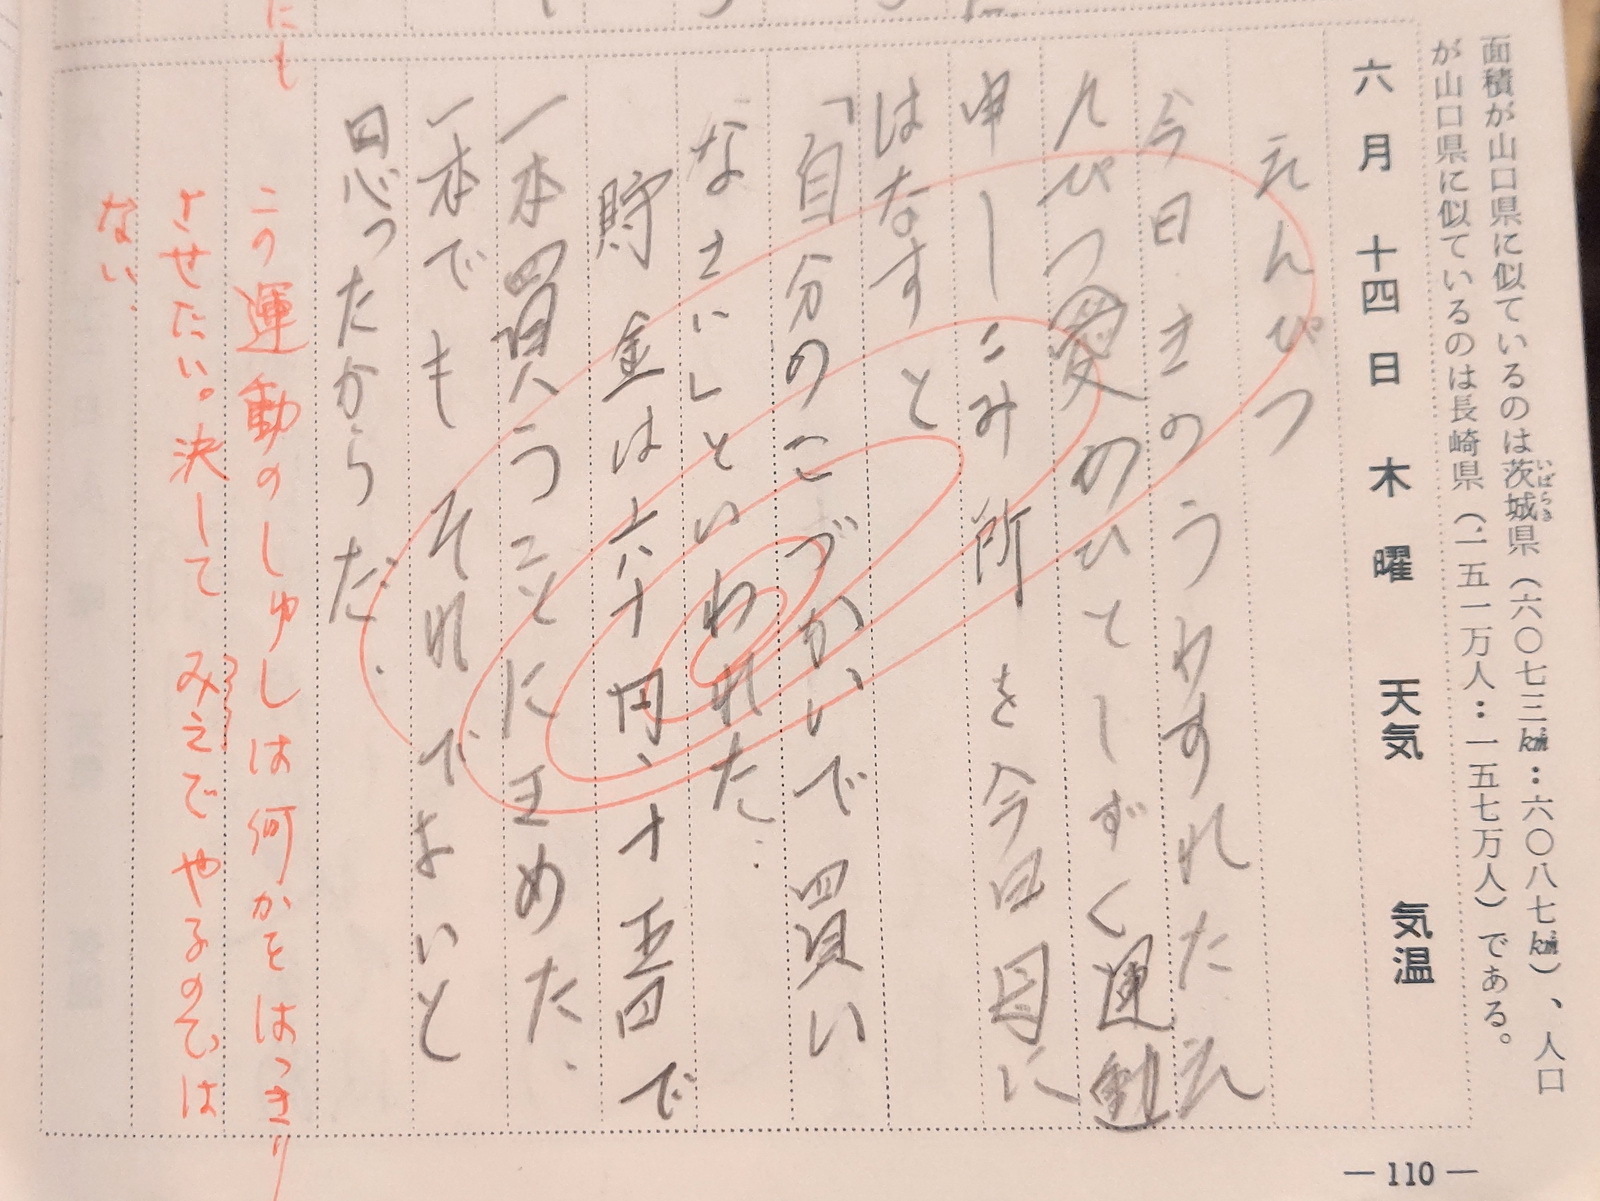 面積が山口県に似ているのは茨城県(六〇七三㎢:六〇八七㎢)、人口
が山口県に似ているのは長崎県(一五一万人:一五七万人)である。
六月十四日 木曜 天気 気温
えんぴつ
今日きのうわすれたえ
んぴつ愛のひとしずく運動
申しこみ所を今日目に
はなすと
「自分のこづかいで買い
なさい」といわれた。
貯金は六十円、十五円で
一本買うことにきめた。
一本でもそれでよいと
思ったからだ。
この運動のしゅしは何かをはっきり
させたい。決してみえでやるのでは
ない。
にも
— 110 —